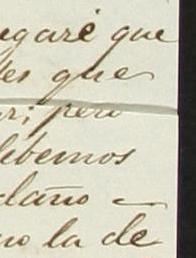 egaré que
les que
r; pero
debemos
daño —
no la de